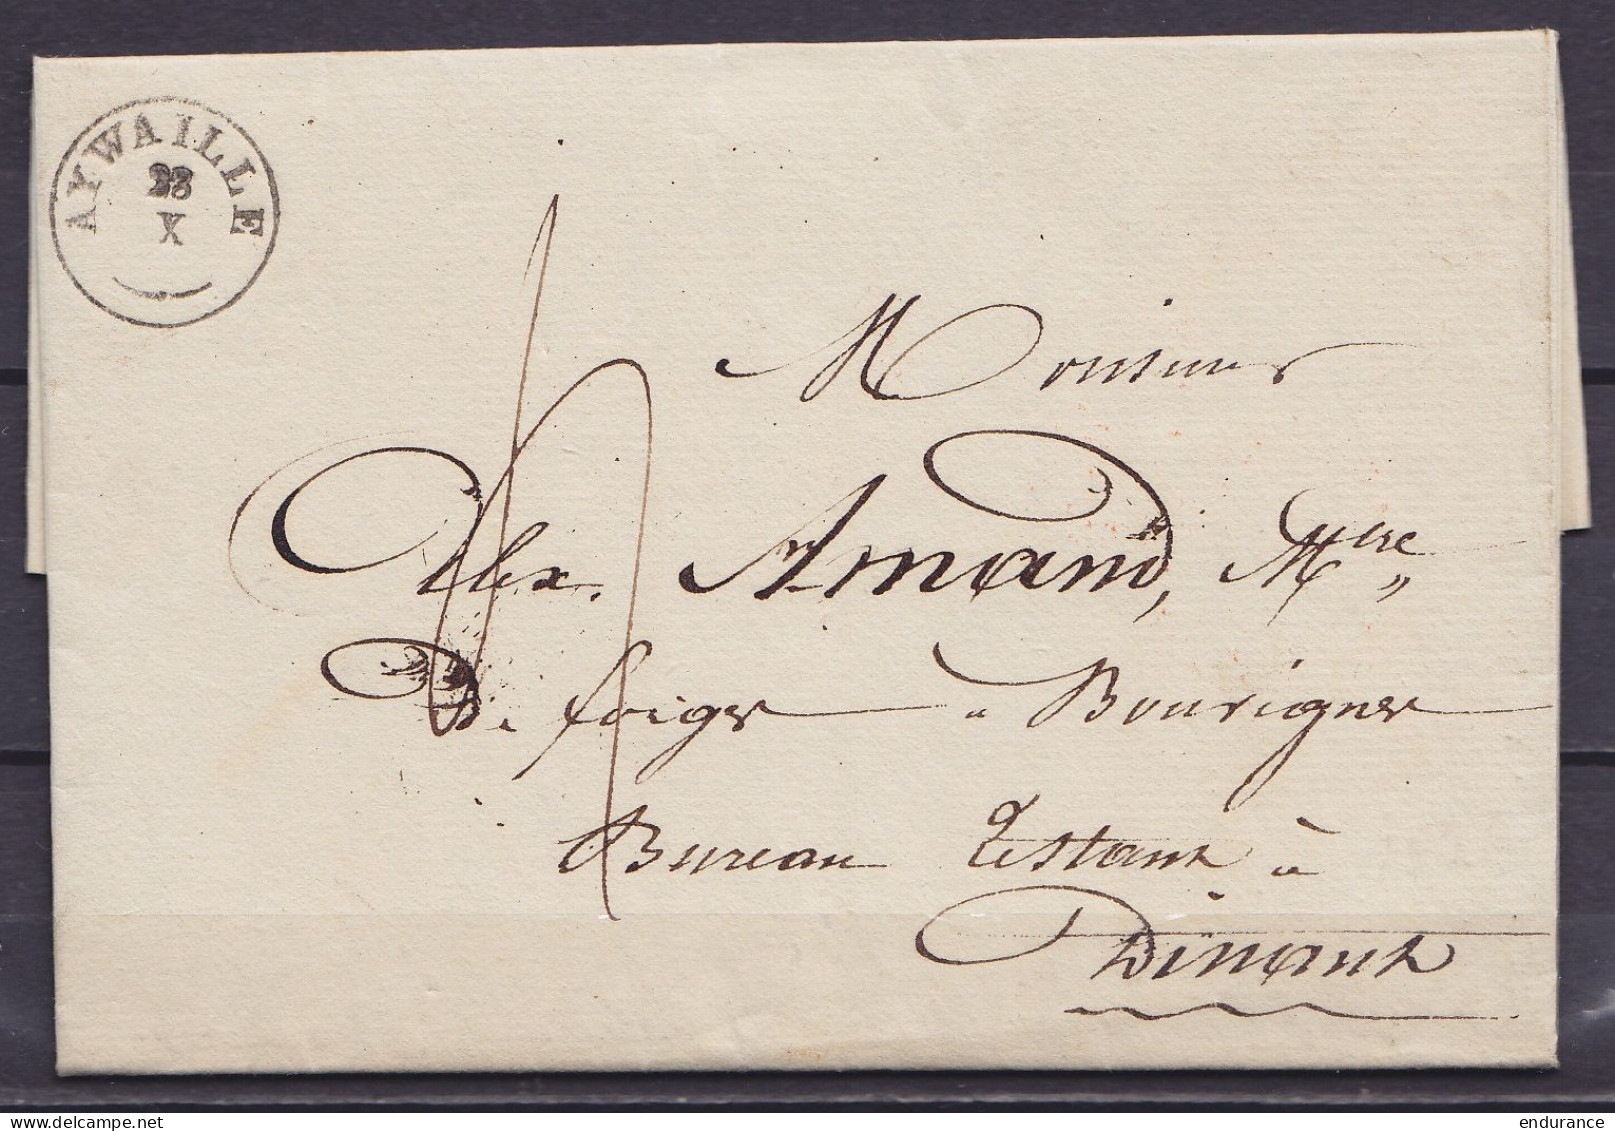 AYWAILLE
23
X
Monsieur
Alex. Amand, Mtre
De forges à Bouvignes
Bureau Restant à
Dinant
delcampe.net
endurance